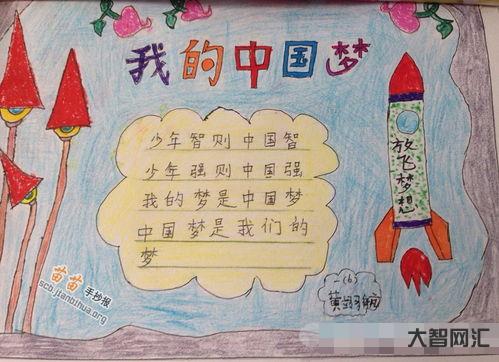 我的中国梦
少年智则中国智
少年强则中国强
我的梦是中国梦
中国梦是我们的
梦
放飞梦想
一(6)
苗苗手抄报
scb.jianbihua.org
大智网汇